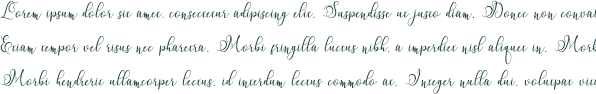 Lorem ipsum dolor sit amet, consectetur adipiscing elit. Suspendisse ut justo diam. Donec non
Etiam tempor vel risus nec pharetra. Morbi fringilla luctus nibh, a imperdiet nisl aliquet in.
Morbi hendrerit ullamcorper lectus, id interdum lectus commodo ac. Integer nulla dui, volutpat